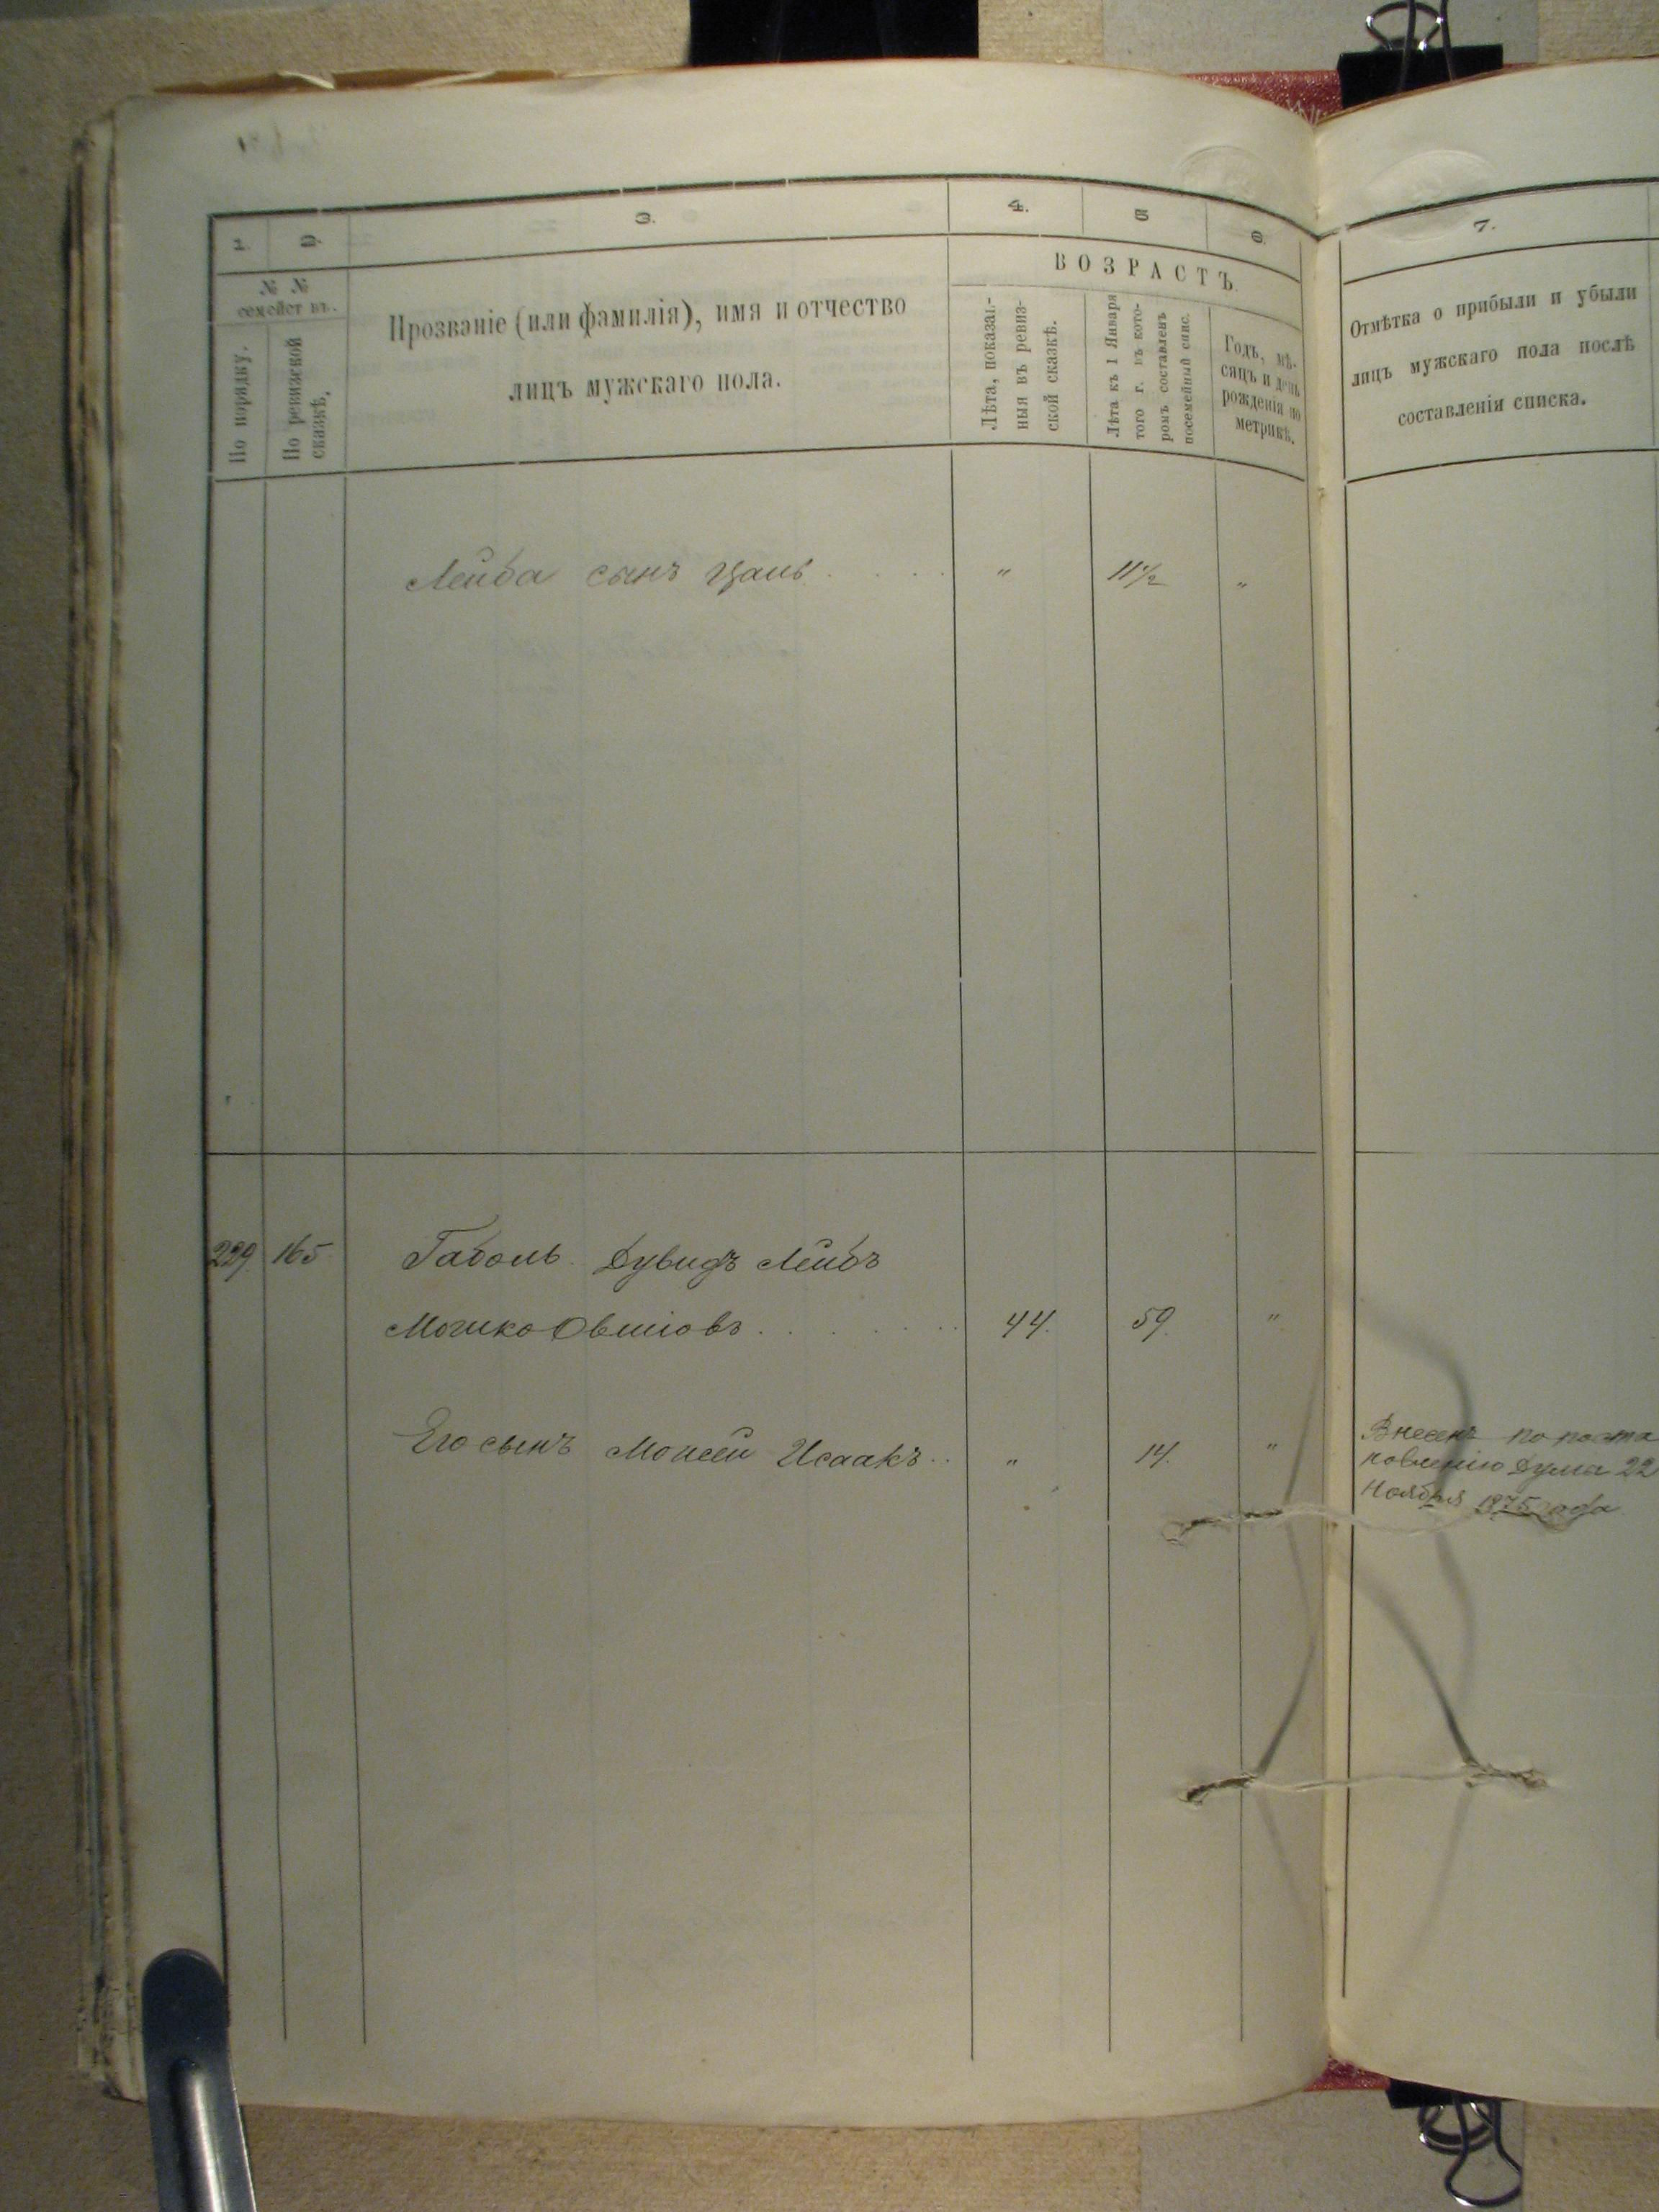 1.
2.
3.
4.
5
6.
7.
№ №
семейст въ.
По порядку.
По ревизской
сказкѣ.
Прозваніе (или фамилія), имя и отчество
лицъ мужскаго пола.
ВОЗРАСТЪ
Лѣта, показан-
ныя въ ревиз-
ской сказкѣ.
Лѣта къ 1 Января
того г. въ кото-
ромъ составленъ
посемейный спис.
Годъ, мѣ-
сяцъ и день
рожденія по
метрикѣ.
Отмѣтка о прибыли и убыли
лицъ мужскаго пола послѣ
составленія списка.
Лейба сынъ . . . . " 11½ "
229 165 Габоль Дувидъ Лейбъ
Мошко Овшіовъ . . . . . . . 44. 59. "
Его сынъ Моисей Исаакъ . . " 14. "
Внесенъ по поста
новленію Думы 22
Ноября 1875 года